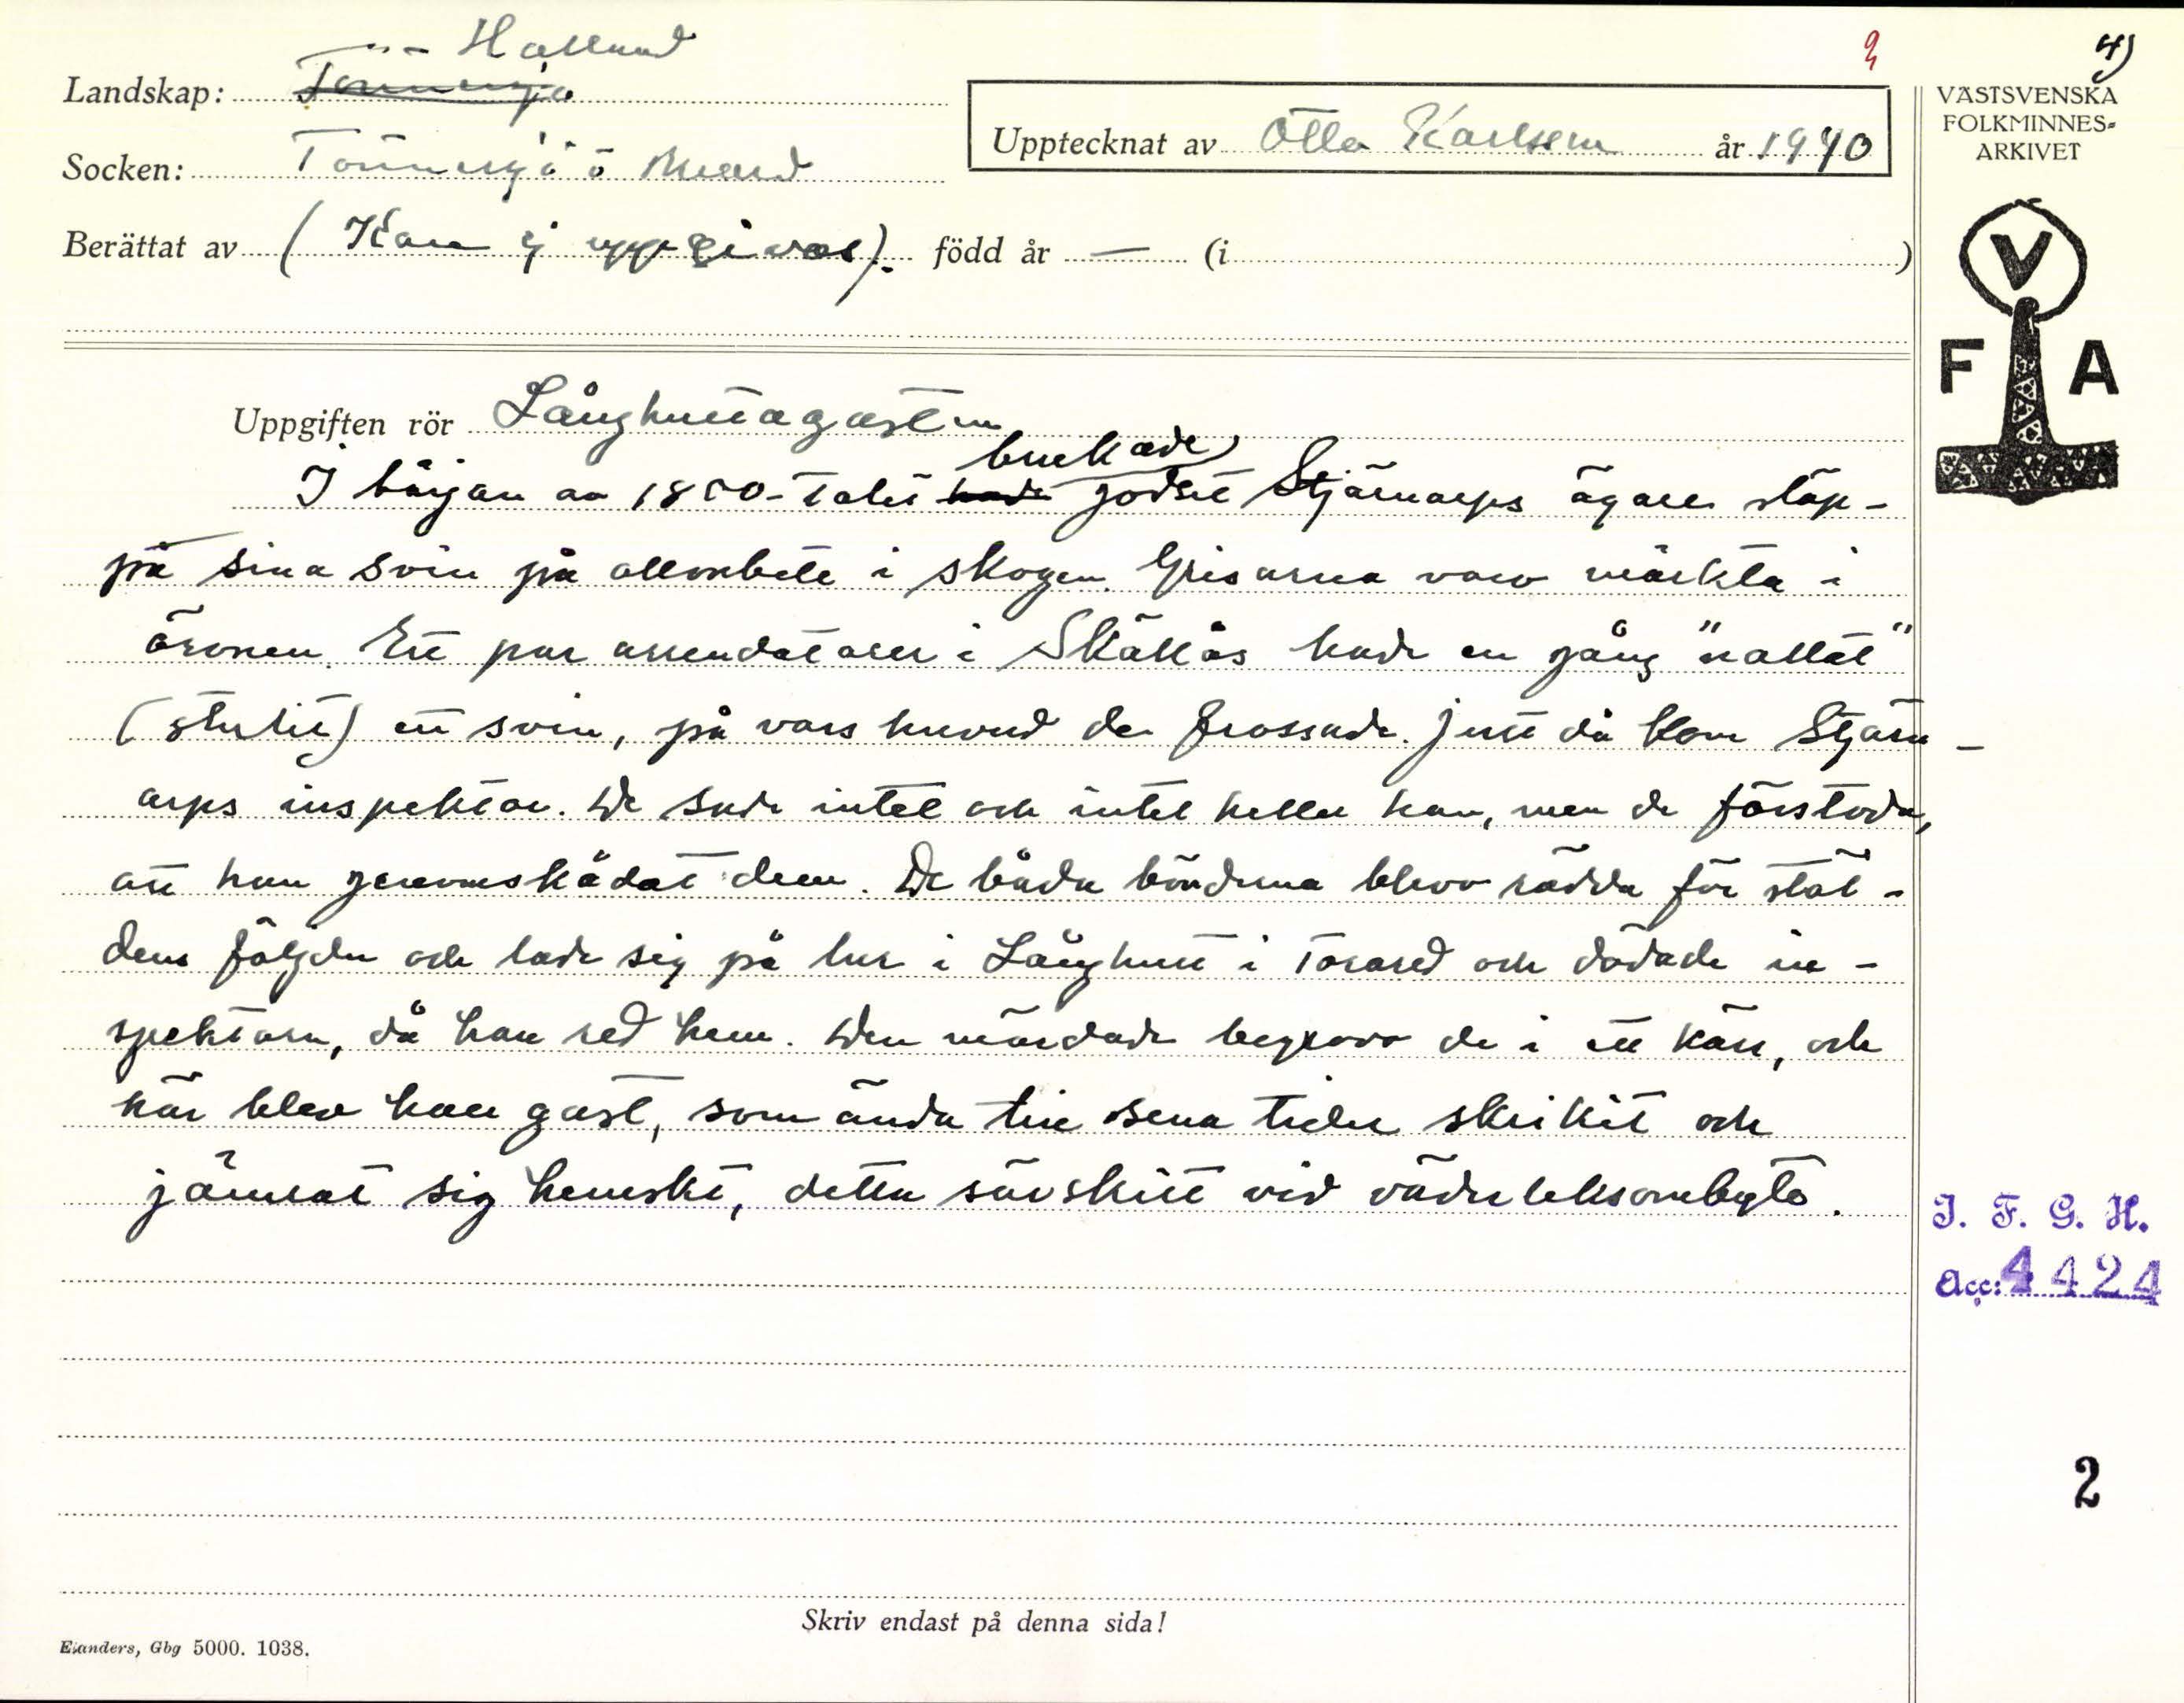 Halland
Landskap: Tönnersjö
4)
VÄSTSVENSKA
FOLKMINNES-
ARKIVET
Upptecknat av Otto Karlsson år 1940
Socken: Tönnersjö ö
Berättat av (Kan ej uppgivas). född år — (i )
V
F A
Uppgiften rör Långhultagasten
brukade
I början av 1800-talet hade godset Stjärnarps ägare släp-
pa sina svin på ollonbete i skogen. Grisarna voro märkta i
öronen. Ett par arrendatorer i Skällås hade en gång "nallat"
(stulit) ett svin, på vars huvud de frossade. Just då kom Stjärn-
arps inspektor. De sade intet och intet heller han, men de förstodo,
att han genomskådat dem. De båda bönderna blevo rädda för stöl-
dens följder och lade sig på lur i Långhult i Torared och dödade in-
spektorn, då han red hem. Den mördade begrovo de i ett kärr, och
här blev han gast, som ända till sena tider skrikit och
jämrat sig hemskt, detta särskilt vid väderleksombyte.
I. F. G. H.
Acc: 4424
2
Skriv endast på denna sida!
Elanders, Gbg 5000. 1038.